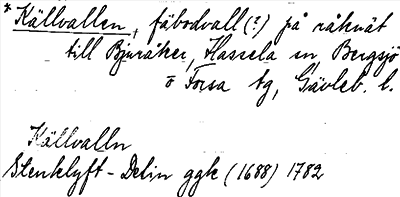 * Källvallen, fäbodvall (?) på råknät
till Bjuråker, Hassela sn, Bergsjö
o Forsa tg, Gävleb. l.
Källvalln
Stenklyft - Delin ggk (1688) 1782